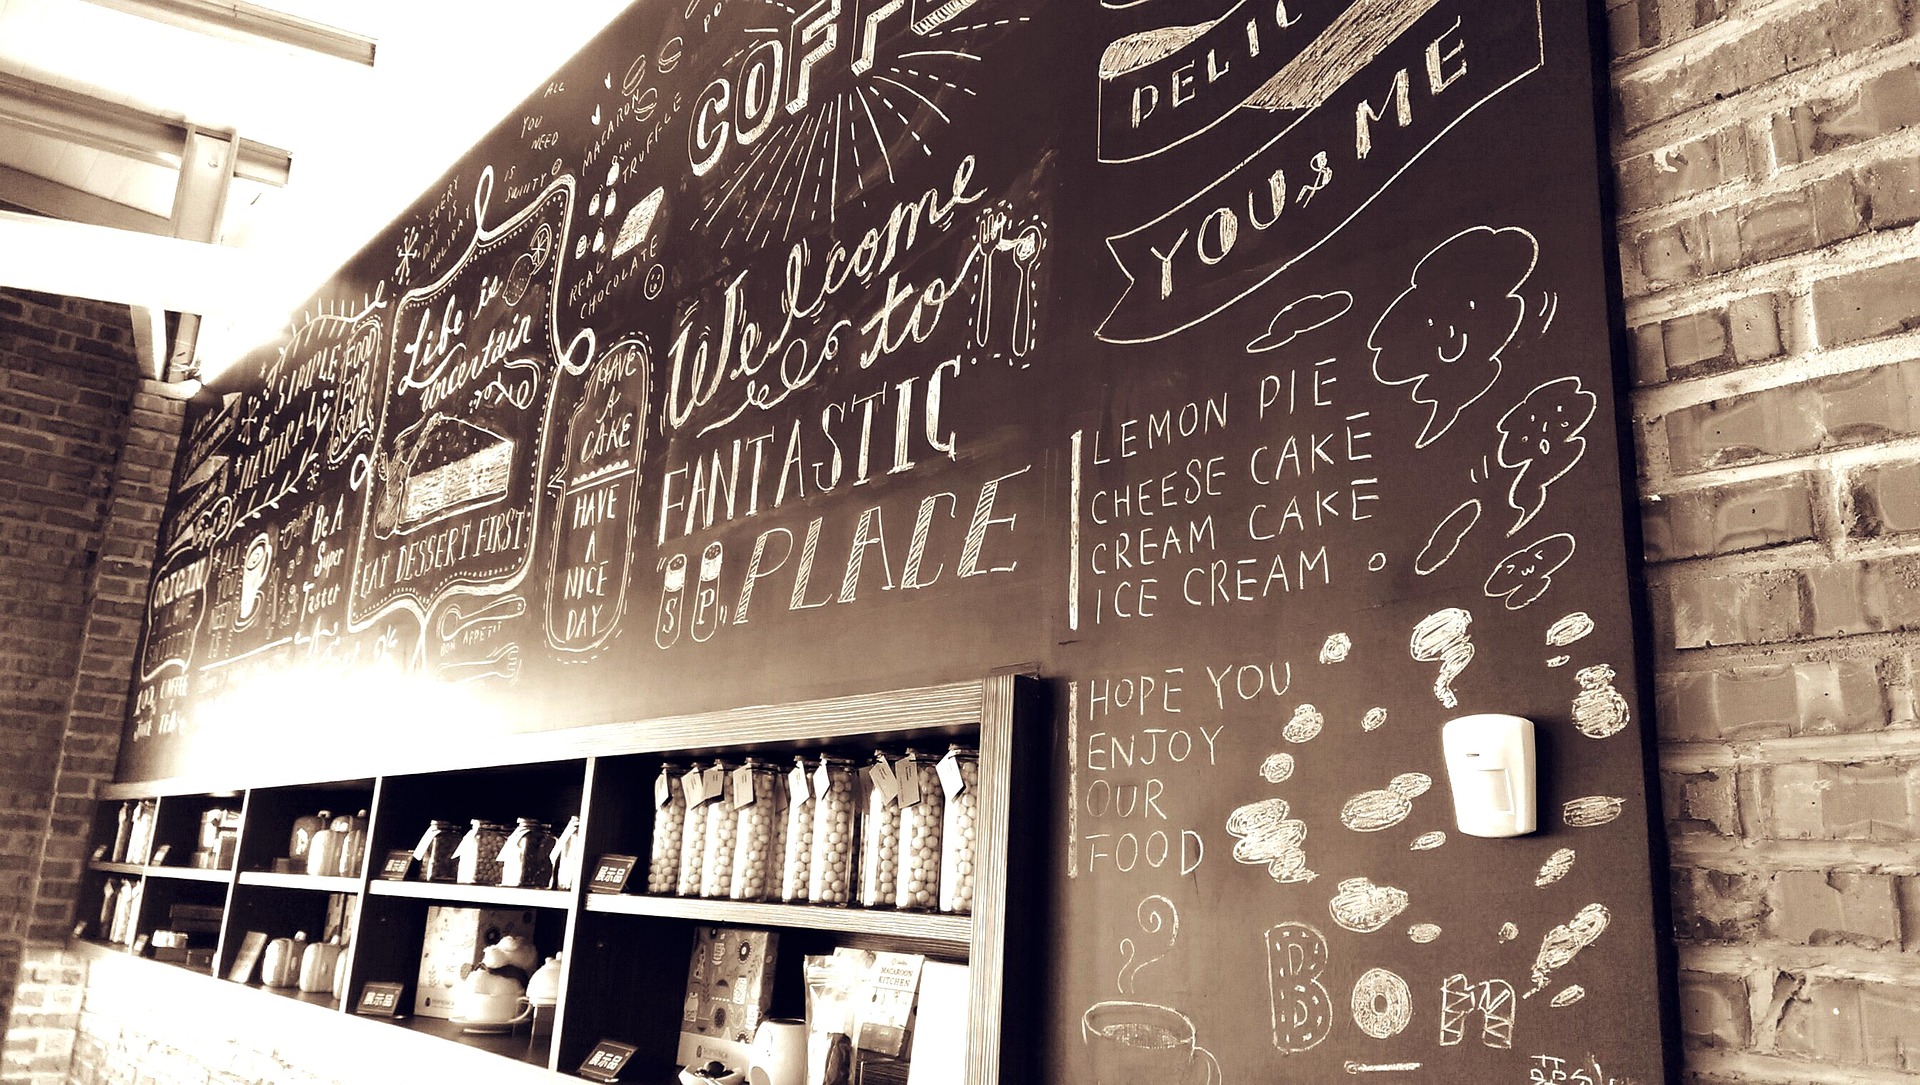 ALL
YOU
NEED
IS
EVERY
DAY IS
HOLIDAY
SIMPLE
&
NATURAL
FOOD
FOR
SOUL
Life is
uncertain
EAT DESSERT FIRST
BON APPETIT
Be A
Super
Taster
ORIGIN
MACARON
TRUFFLE
REAL
CHOCOLATE
HAVE
A
CAKE
HAVE
A
NICE
DAY
COFFE
Welcome
to
FANTASTIC
S P PLACE
DELIC
YOU & ME
LEMON PIE
CHEESE CAKE
CREAM CAKE
ICE CREAM
HOPE YOU
ENJOY
OUR
FOOD
BON
展示品
展示品
展示品
展示品
MACAROON
KITCHEN